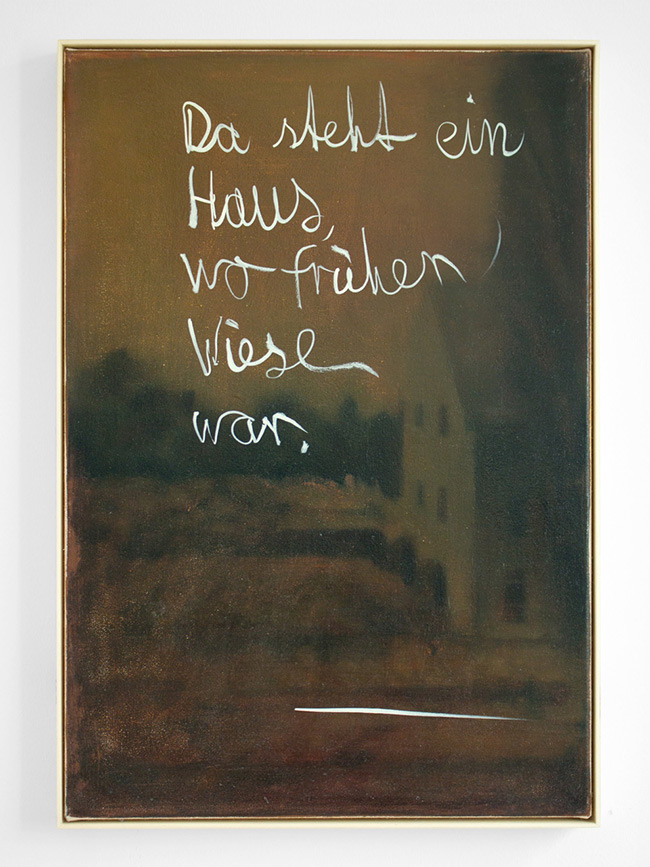 Da steht ein
Haus,
wo früher
Wiese
war.